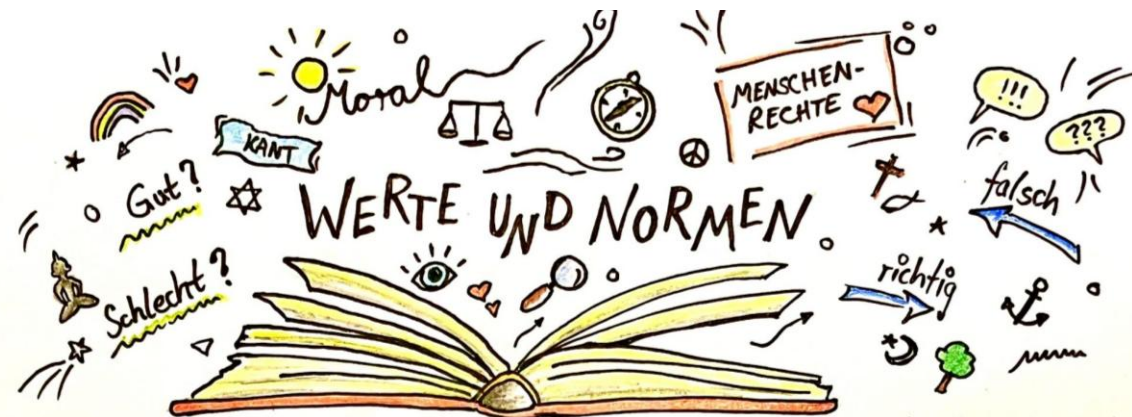 Moral
KANT
MENSCHEN-
RECHTE
!!!
???
Gut?
Schlecht?
WERTE UND NORMEN
falsch
richtig